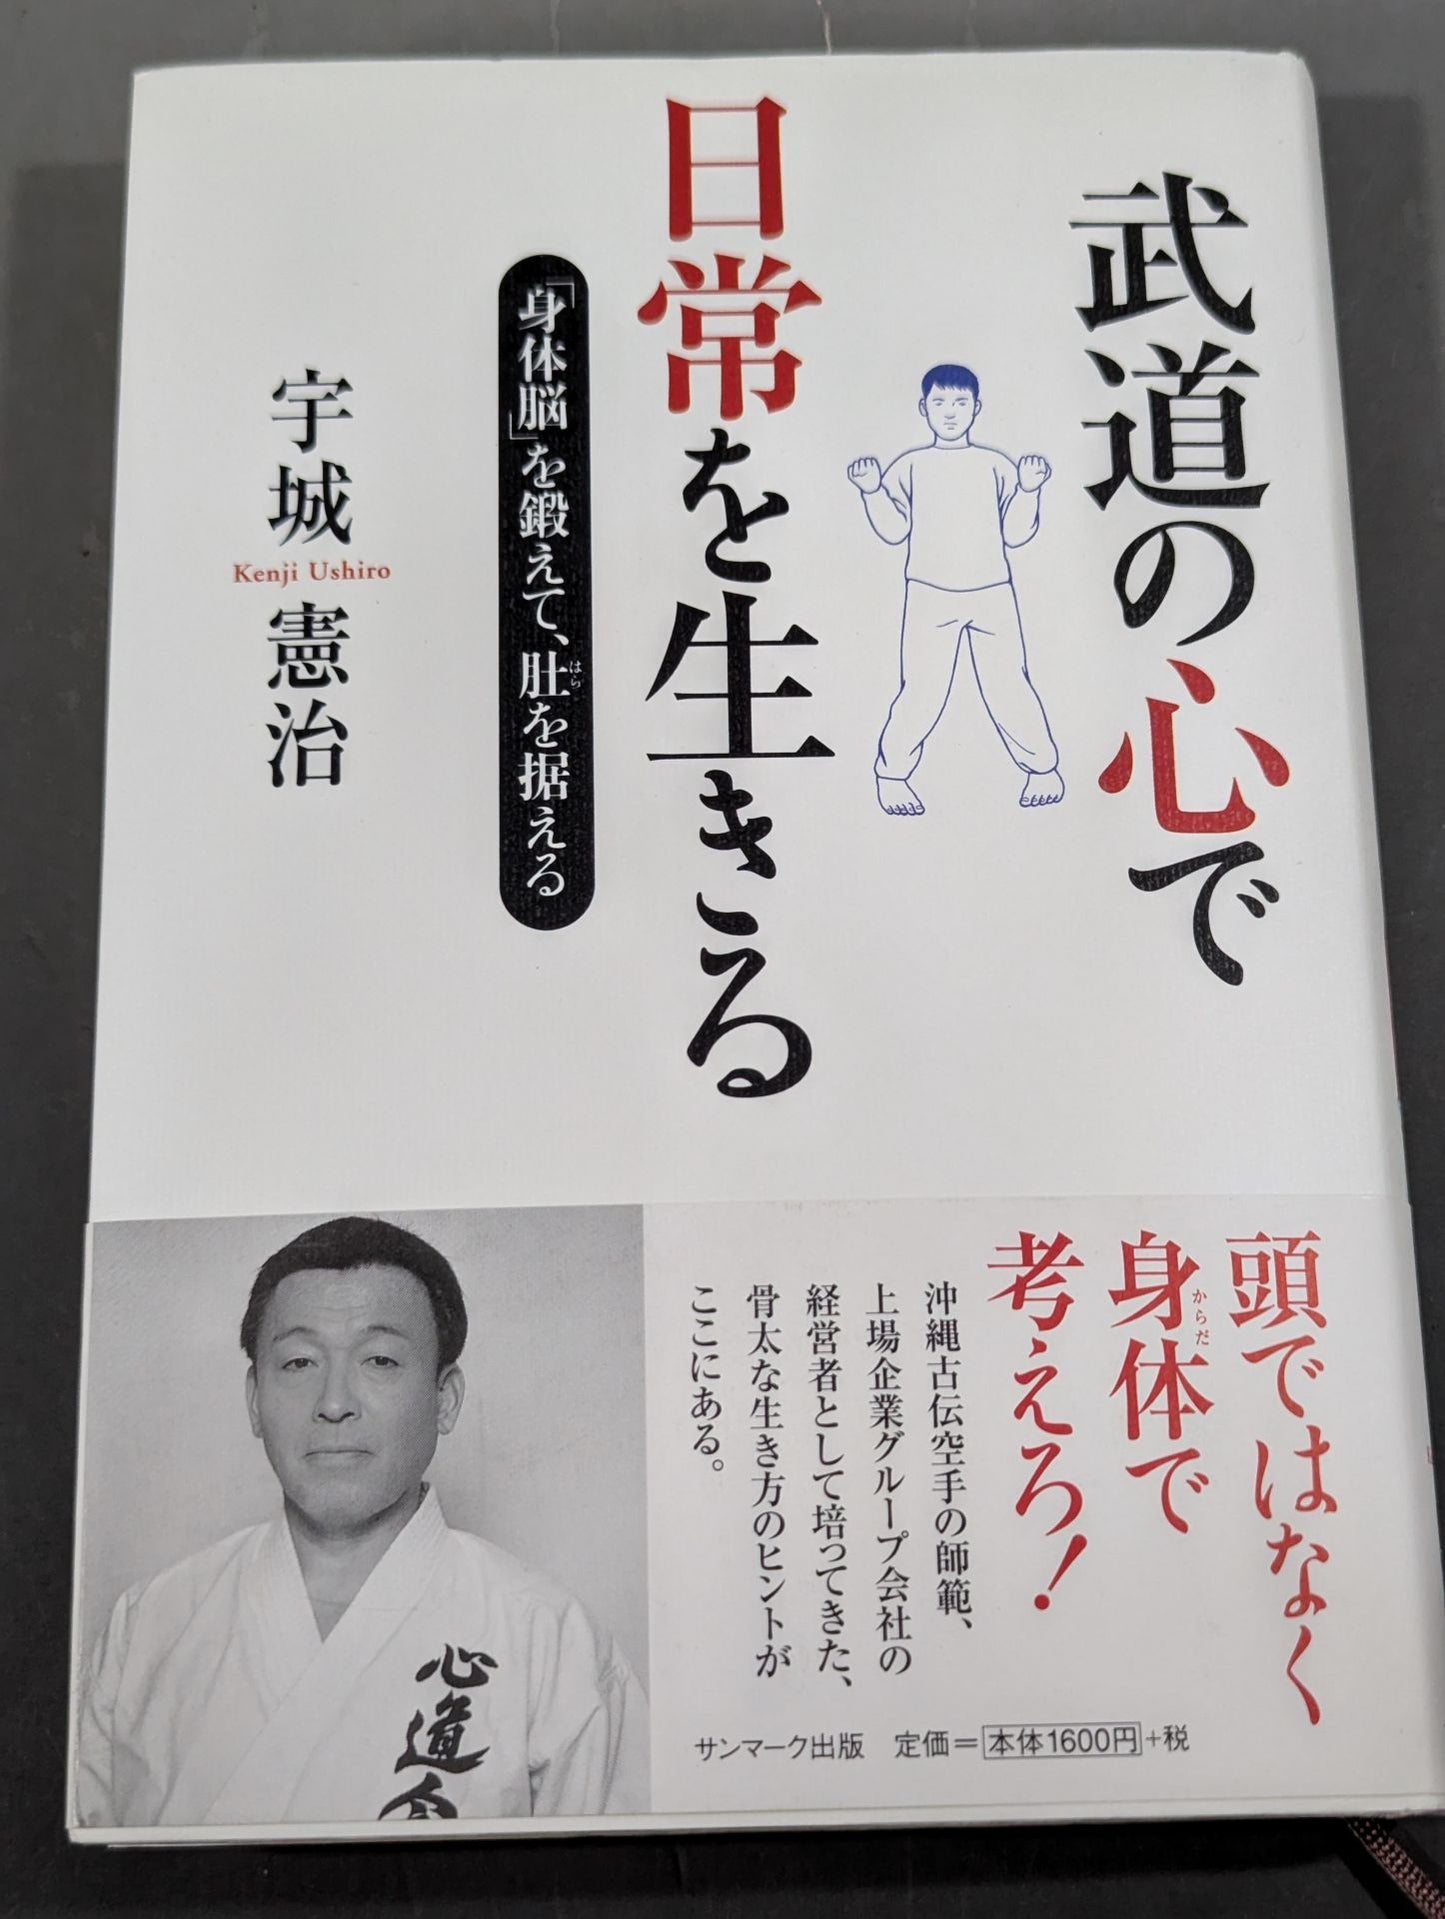 武道の心で
日常を生きる
「身体脳」を鍛えて、肚を据える
はら
宇城
Kenji Ushiro
憲治
頭ではなく
身体で
からだ
考えろ!
沖縄古伝空手の師範、
上場企業グループ会社の
経営者として培ってきた、
骨太な生き方のヒントが
ここにある。
サンマーク出版 定価=本体1600円+税
心道会